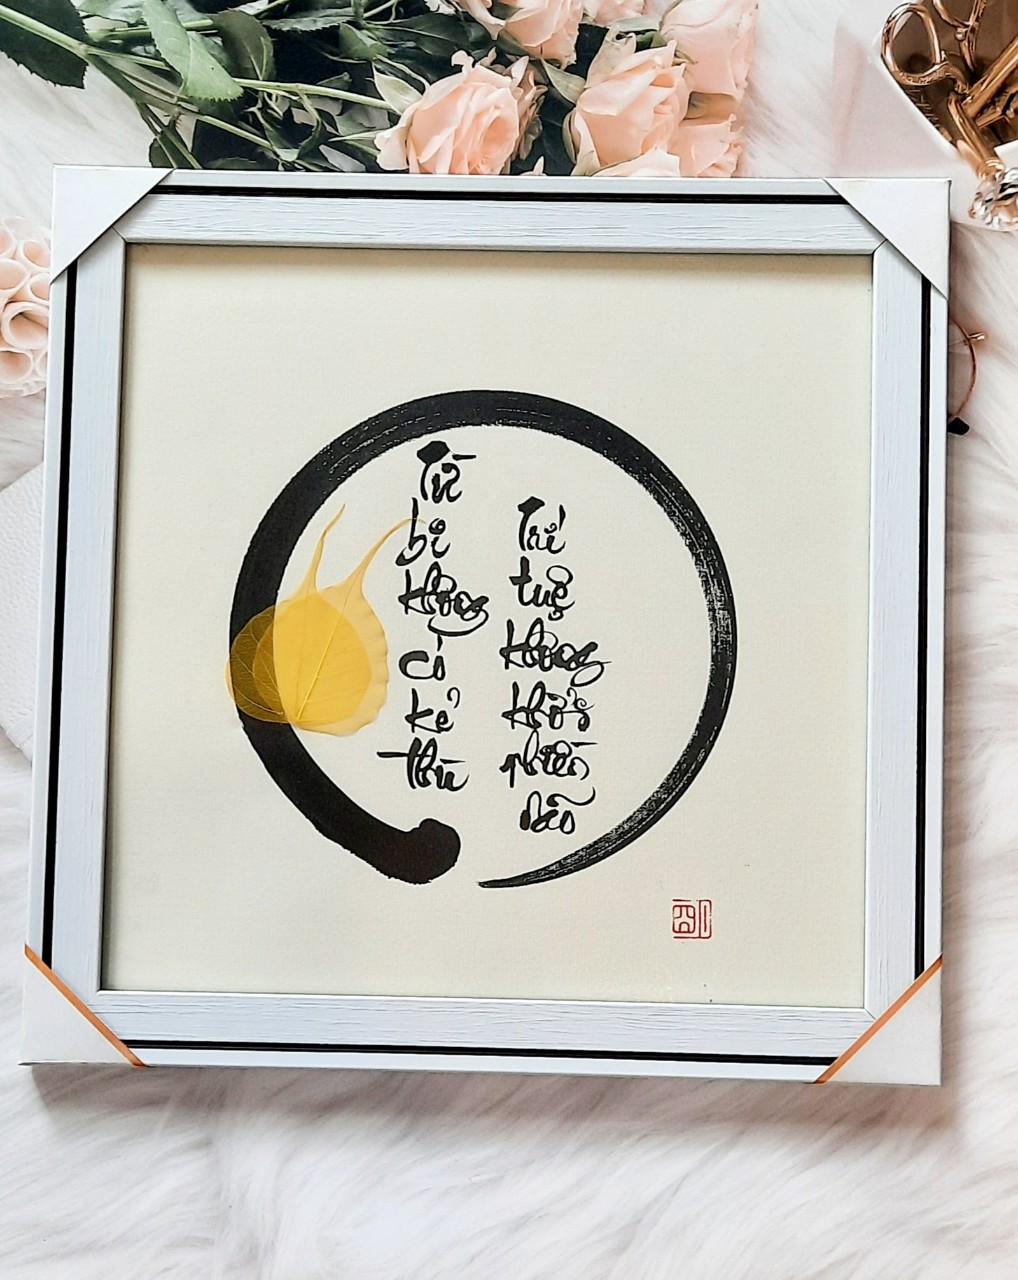 Từ
bi
không
có
kẻ
thù
Trí
tuệ
không
khởi
phiền
não